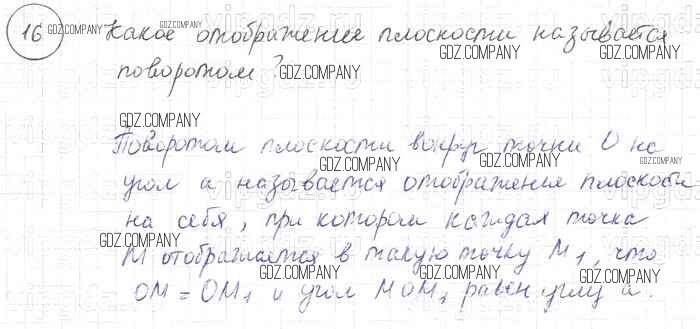 16 Какое отображение плоскости называется
поворотом?
Поворотом плоскости вокруг точки О на
угол a называется отображение плоскости
на себя, при котором каждая точка
M отображается в такую точку M₁, что
OM = OM₁ и угол MOM₁ равен углу a.
GDZ.COMPANY
GDZ.COMPANY
GDZ.COMPANY
GDZ.COMPANY
GDZ.COMPANY
GDZ.COMPANY
GDZ.COMPANY
GDZ.COMPANY
GDZ.COMPANY
GDZ.COMPANY
GDZ.COMPANY
GDZ.COMPANY
GDZ.COMPANY